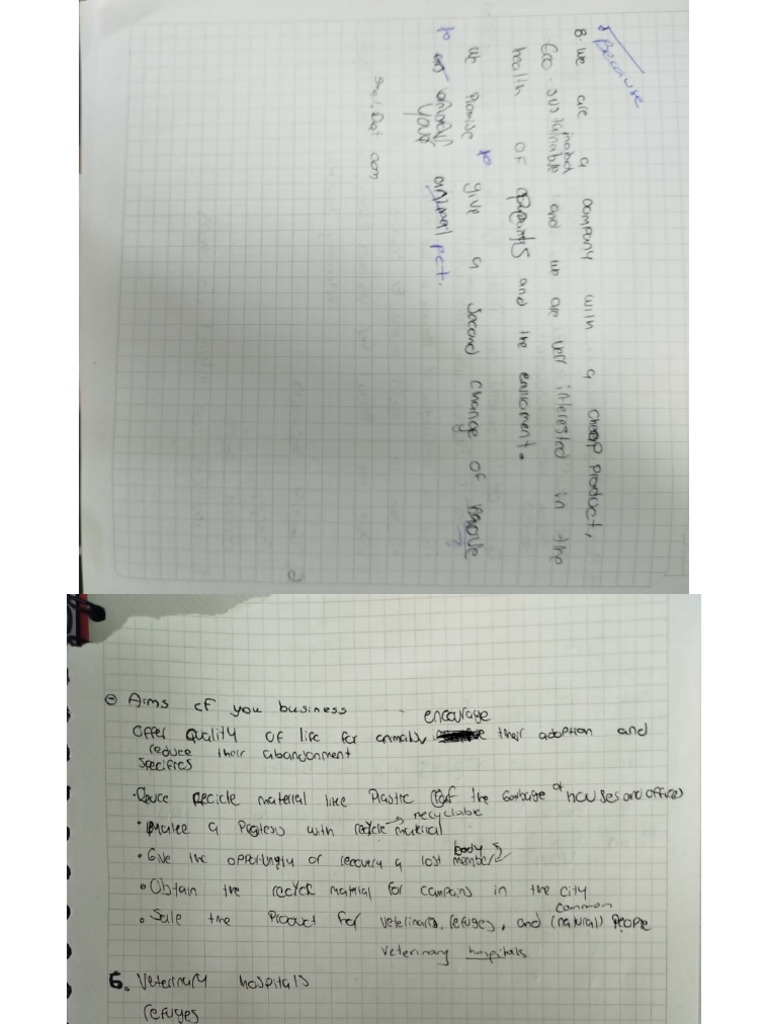 Because
8. we are a company with a cheap product,
Eco-sustainable and we are very interested in the
health of and the enviroment.
we promise to give a second change of move
to your animal pet.
⊖ Aims of you business
encourage
Offer quality of life for animals their adoption and
reduce their abandonment
specifics
recicle material like Plastic of the Garbage of houses and offices
recyclable
• Make a Progress with recycle material
body
• Give the opportunity of recovery a lost member
• Obtain the recycle material for campains in the city
common
• Sale the Product for vetelinaris, refuges, and (natural) People
veterinary hospitals
6. Veterinary hospitals
refuges